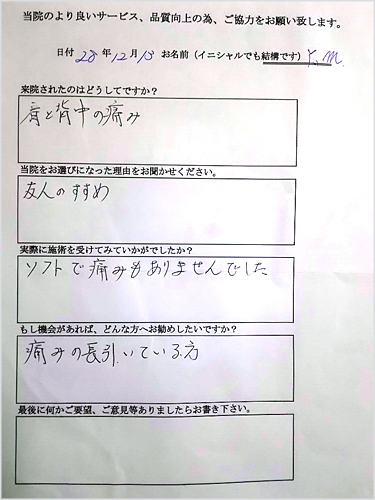 当院のより良いサービス、品質向上の為、ご協力をお願い致します。
日付 28 年 12 月 13 お名前（イニシャルでも結構です） Y. M.
来院されたのはどうしてですか？
肩と背中の痛み
当院をお選びになった理由をお聞かせください。
友人のすすめ
実際に施術を受けてみていかがでしたか？
ソフトで痛みもありませんでした
もし機会があれば、どんな方へお勧めしたいですか？
痛みの長引いている方
最後に何かご要望、ご意見等ありましたらお書き下さい。